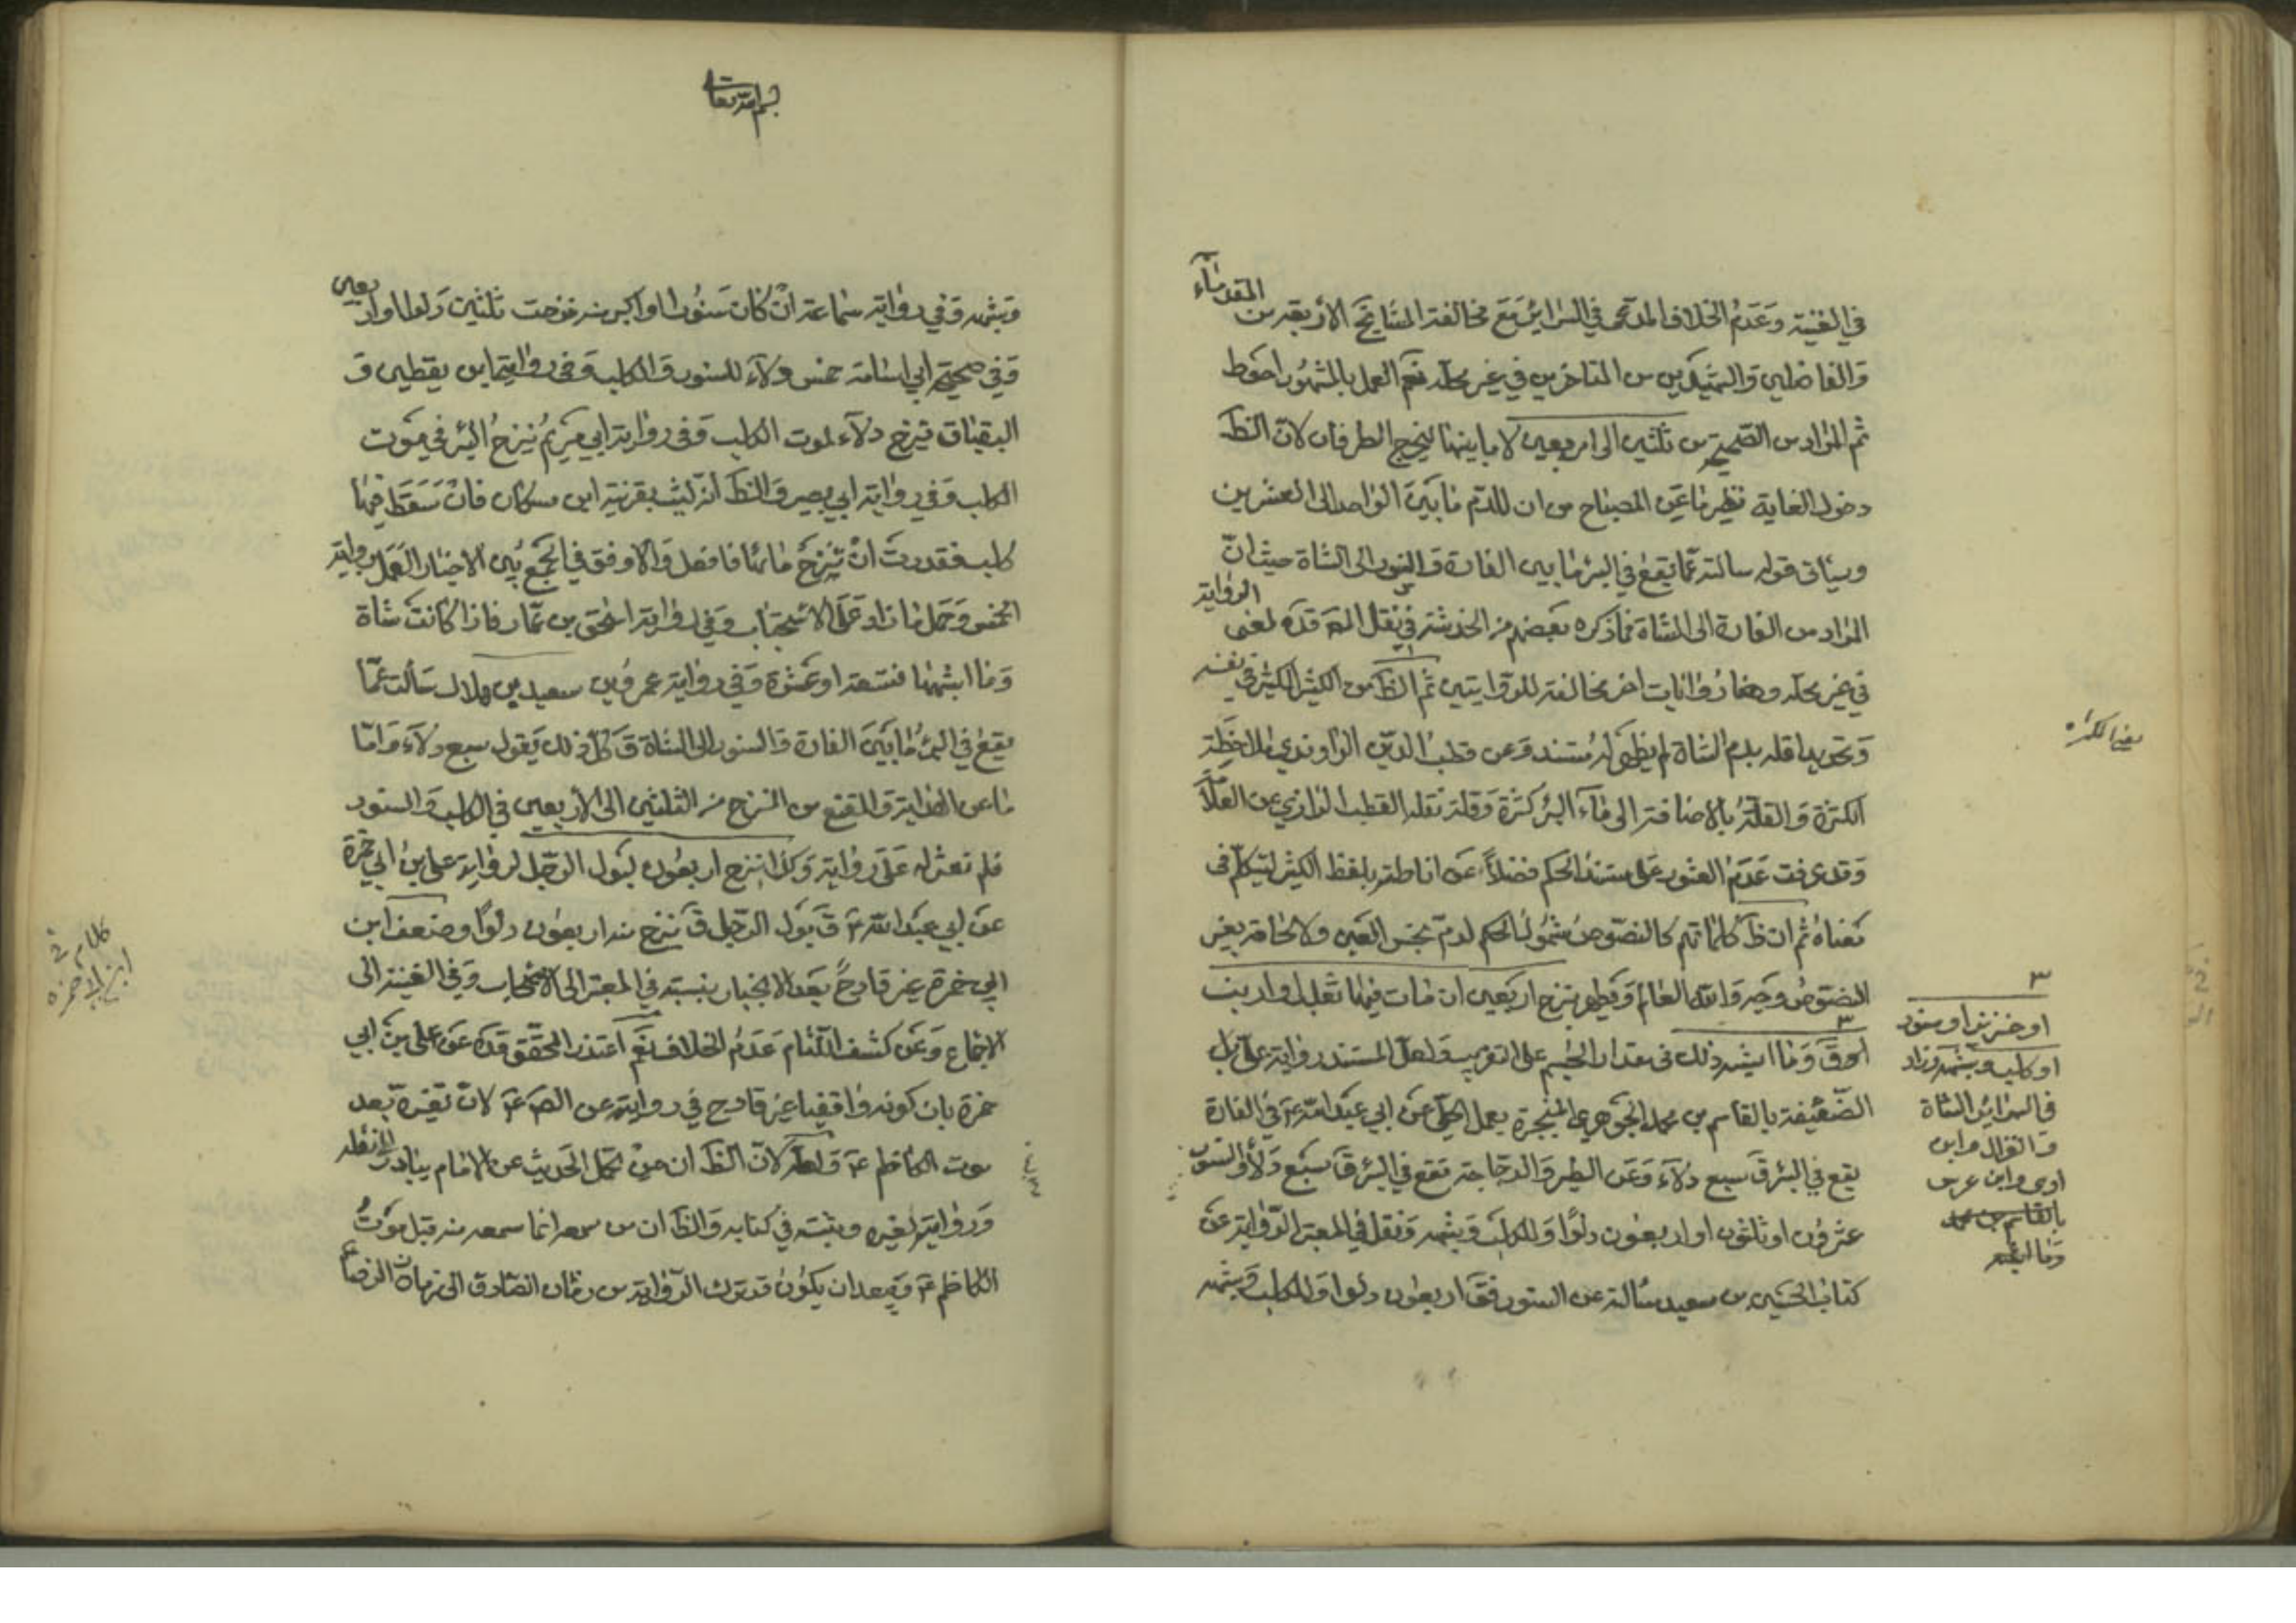 في الغنية وعدم الخلاف المدعى في السرائر مع مخالفة المشايخ الأربعة من القدماء
والفاضلين والشهيدين من المتاخرين في غير محله نعم العمل بالمشهور احوط
ثم المراد من الصحيحة من ثلثين الى اربعين لا ما بينهما ليخرج الطرفان لان الظ
دخول الغاية نظير ما عن المصباح من ان للدم ما بين الواحد الى العشرين
وسيأتي قوله سالته عما يقع في البئر ما بين الفارة والسنور الى الشاة حيث انّ
المراد من الفارة الى الشاة فما ذكره بعضهم من الخدشة في نقل المص قده لمعنى الرواية
في غير محله وهنا روايات اخر مخالفة للروايتين ثم الظ من الكثير الكثير في نفسه
وتحديد اقله بدم الشاة لم يظهر له مستند وعن قطب الدين الراوندي ملاحظة
الكثرة والقلة بالاضافة الى ماء البئر كثرة وقلة نقله القطب الرازي عن العلامة
وقد عرفت عدم العثور على مستند الحكم فضلاً عن اناطته بلفظ الكثير ليتكلم في
معناه ثم ان ظ كلماتهم كالنصوص شمول الحكم لدم نجس العين ولالحاقه بغير
المنصوص وجه والله العالم ويطهر بنزح اربعين ان مات فيها ثعلب او ارنب
او بق وما اشبه ذلك في مقدار الجسم على التقريب ولعل المستند رواية علي بل
الضعيفة بالقاسم بن محمد الجوهري المنجبرة بعمل الكل عن ابي عبد الله ع في الفارة
يقع في البئر ق سبع دلاء وعن الطير والدجاجة تقع في البئر ق سبع دلاء والسنور
عشرون او ثلثون او اربعون دلوًا والكلب وشبهه ونقل في المعتبر الرواية عن
كتاب الحسين بن سعيد سالته عن السنور فق اربعون دلوا والكلب وشبهه
يعني الكر
٣
او خنزير او سنور
او كلب وشبهه وزاد
في السرائر الشاة
والغزال وابن
اوى وابن عرس
وما اشبه
بسم الله تعالى
وشبهه وفي رواية سماعة ان كان سنورا او اكبر منه نزحت ثلثين دلوا او اربعين
وفي صحيحة ابي اسامة خمس دلاء للسنور والكلب وفي روايتي ابن يقطين و
البقباق تنزح دلاء لموت الكلب وفي رواية ابي مريم ينزح البئر في موت
الكلب وفي رواية ابي بصير والظ انه ليث بقرينة ابن مسكان فان سقط فيها
كلب فقدرت ان تنزح مائها فافعل والاوفق في الجمع بين الاخبار العمل برواية
الخمس وحمل ما زاد على الاستحباب وفي رواية اسحق بن عمار فاذا كانت شاة
وما اشبهها فتسعة او عشرة وفي رواية عمرو بن سعيد بن هلال سألت عمّا
يقع في البئر ما بين الفارة والسنور الى الشاة ق كل ذلك يقول سبع دلاء وامّا
ما عن الهداية والمقنع من النزح من الثلثين الى الاربعين في الكلب والسنور
فلم نعثر له على رواية وكذا ينزح اربعون لبول الرجل لرواية علي بن ابي حمزة
عن ابي عبد الله ع ق بول الرجل ق ينزح منه اربعون دلوًا وضعف ابن
ابي حمزة غير قادح بعد الانجبار بنسبته في المعتبر الى الاصحاب وفي الغنية الى
الاجماع وعن كشف اللثام عدم الخلاف نعم اعتذر المحقق قده عن علي بن ابي
حمزة بان كونه واقفيا غير قادح في روايته عن الص ع لان تغيره بعد
موت الكاظم ع ولعله لان الظ ان من تحمل الحديث عن الامام يبادر الى نقله
وروايته لغيره ويثبته في كتابه والظ ان من سمعه انما سمعه منه قبل موت
الكاظم ع ويبعد ان يكون قد ترك الرواية من زمان الصادق الى زمان الرضا ع
كلام في
ابن ابي حمزة